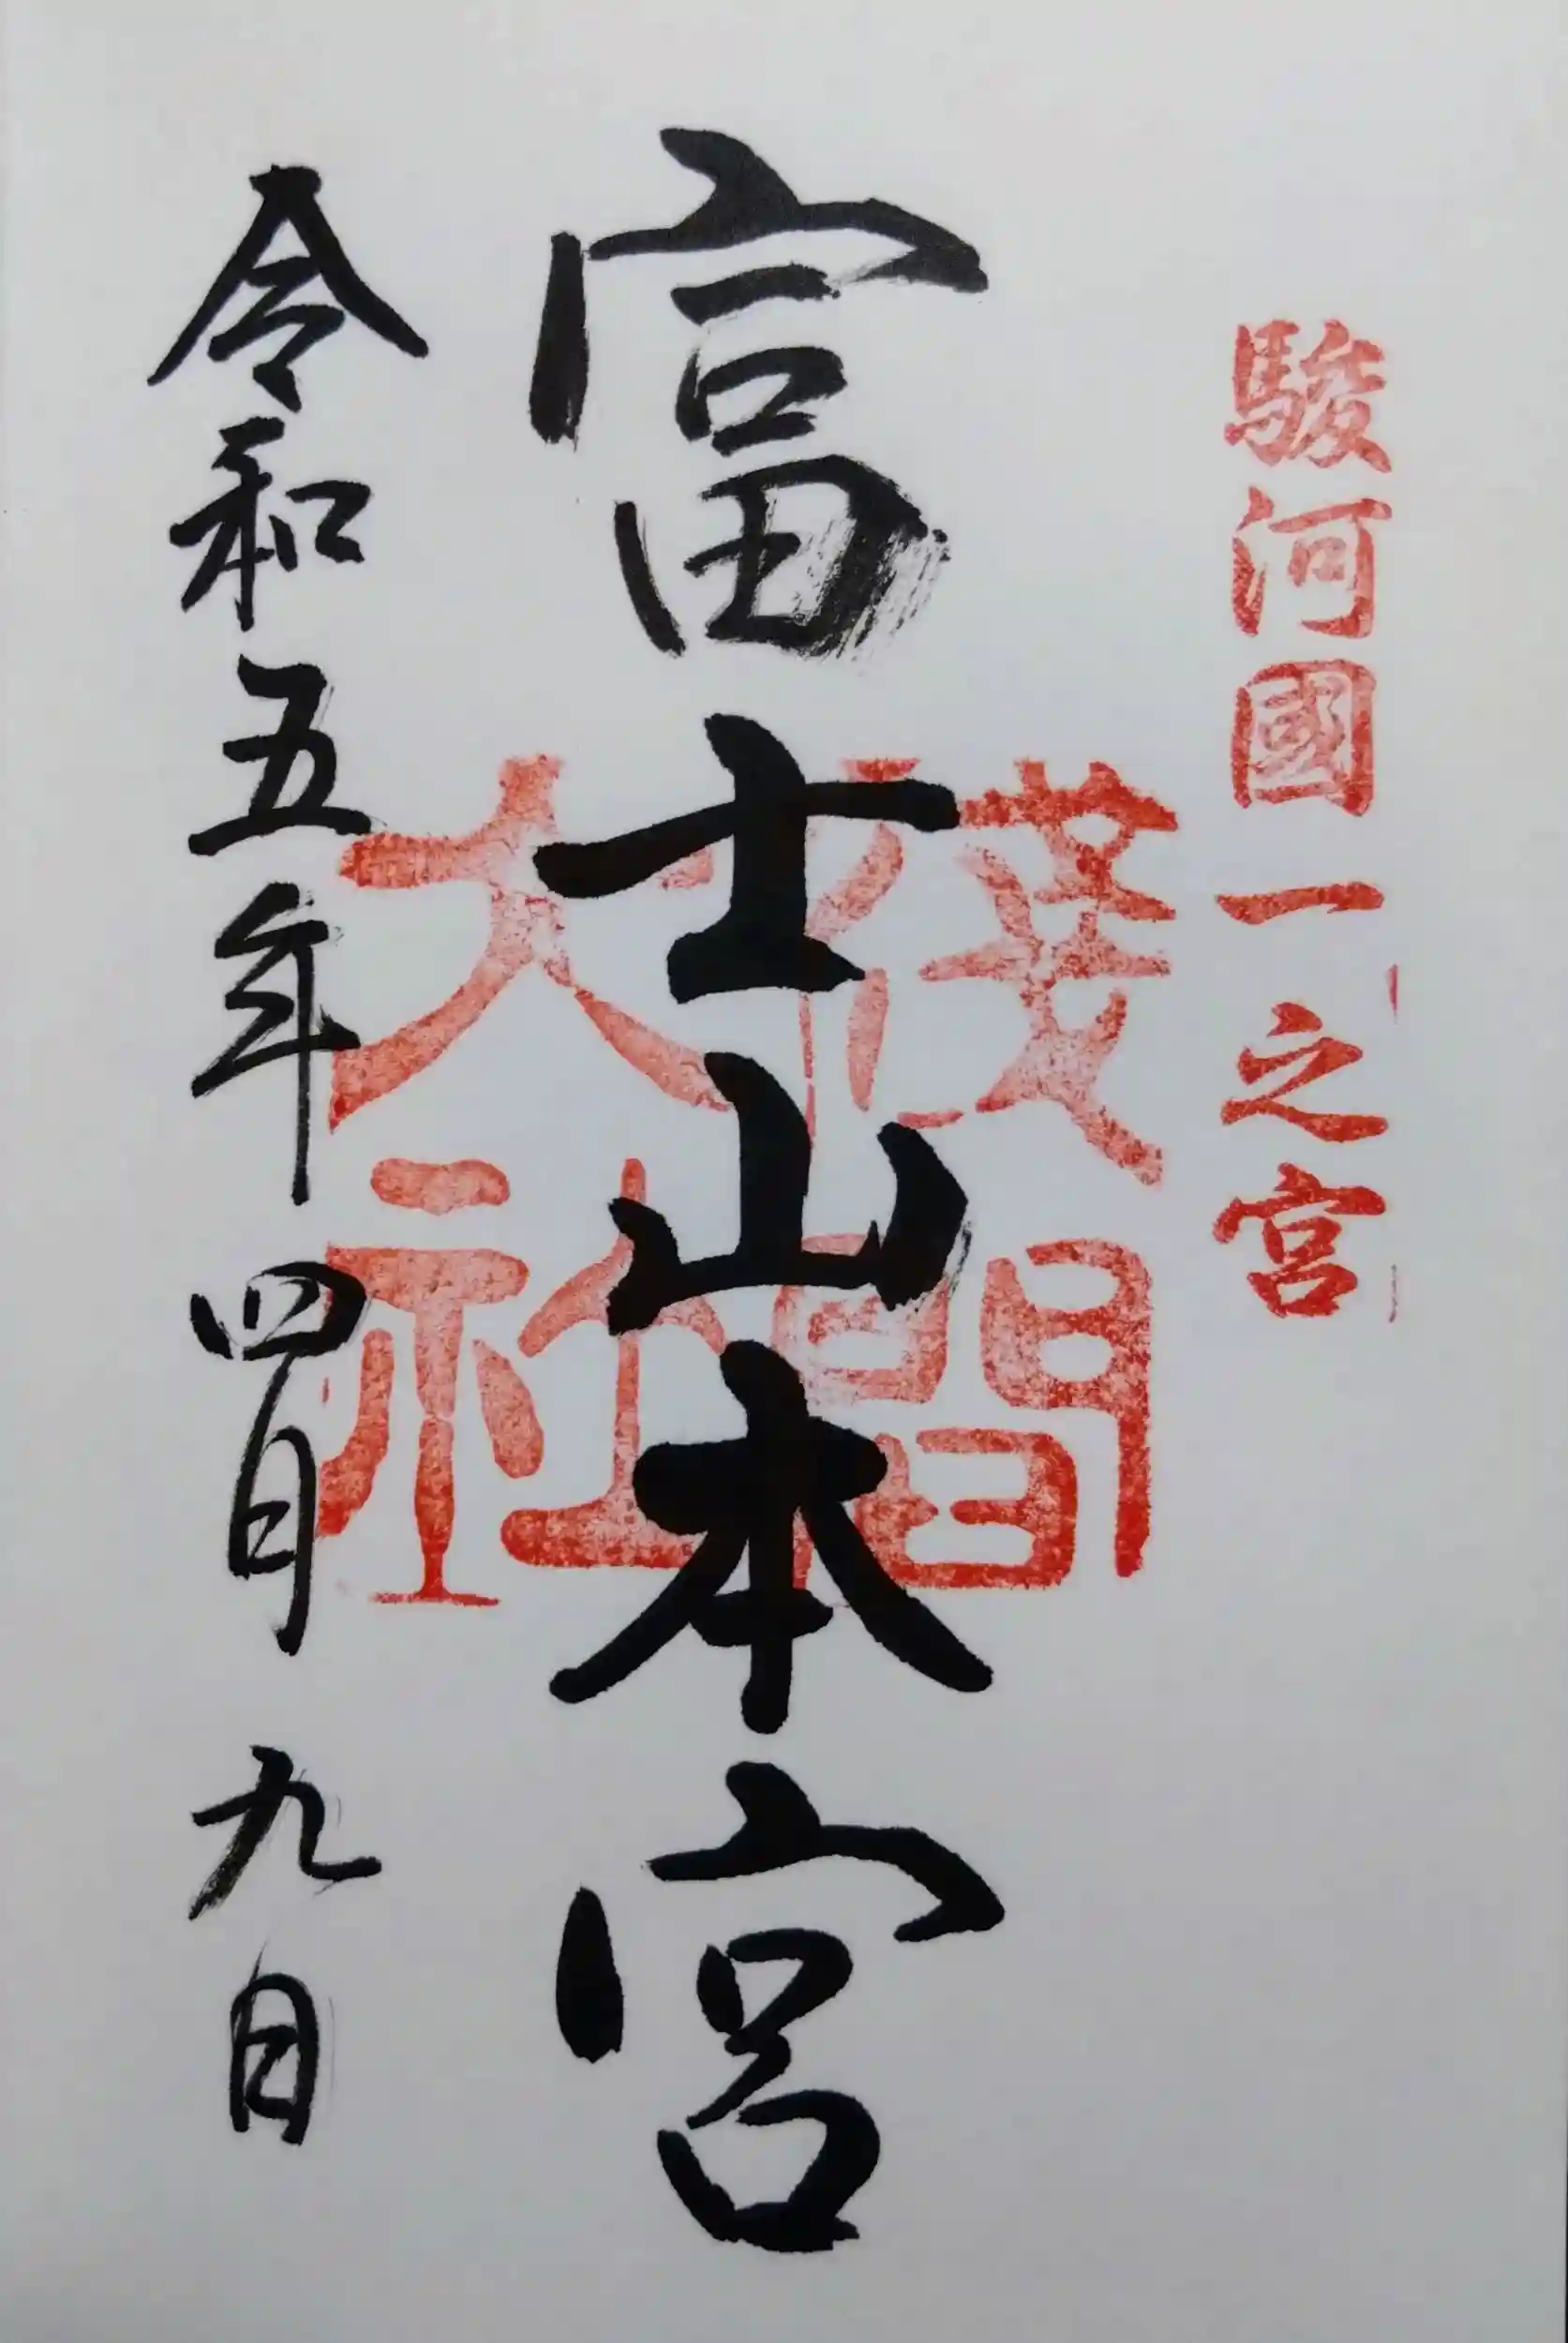 駿河國一之宮
富士山本宮
淺間
大社
令和五年四月九日